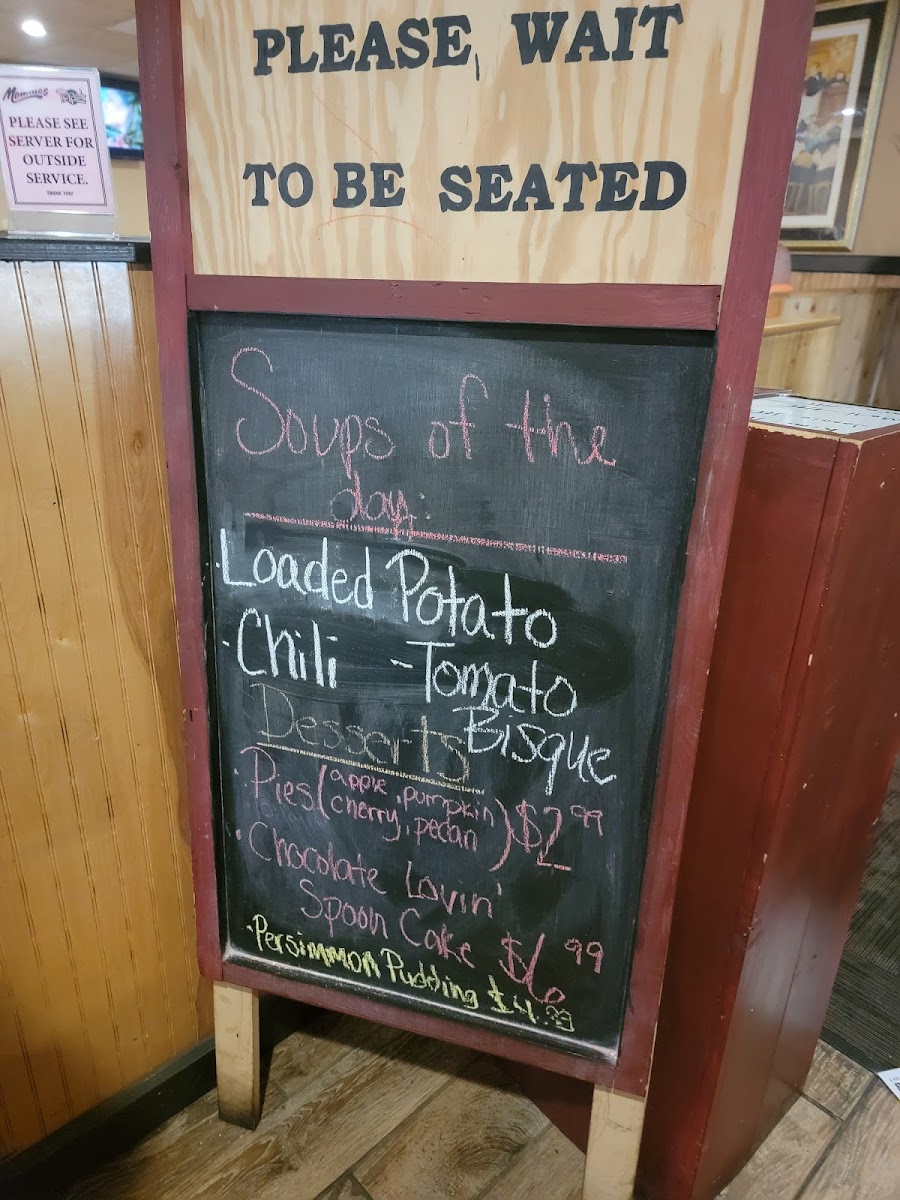 PLEASE, WAIT
TO BE SEATED
Mommas
PLEASE SEE
SERVER FOR
OUTSIDE
SERVICE.
THANK YOU!
Soups of the
day:
·Loaded Potato
·Chili -Tomato
Bisque
Desserts
·Pies (apple, pumpkin
cherry, pecan) $2.99
·Chocolate Lovin'
Spoon Cake $6.99
·Persimmon Pudding $4.99